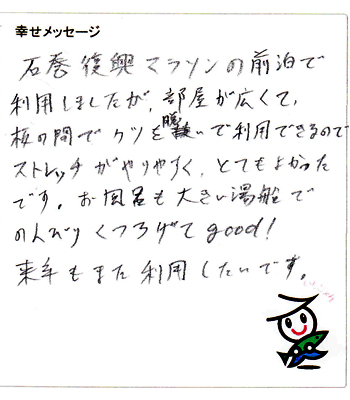 幸せメッセージ
石巻復興マラソンの前泊で
利用しましたが、部屋が広くて、
板の間でクツを脱いで利用できるので
ストレッチがやりやすく、とてもよかった
です。お風呂も大きい湯船で
のんびりくつろげてgood!
来年もまた利用したいです。